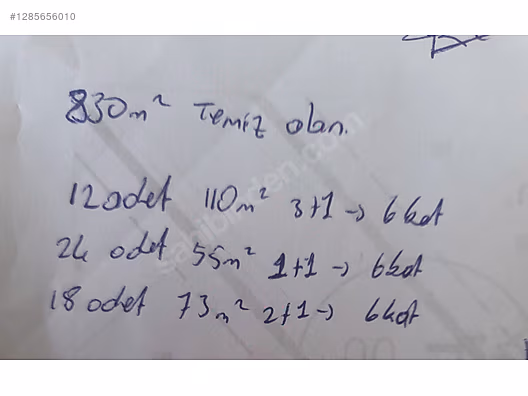 #1285656010
830m² Temiz alan.
12 adet 110m² 3+1 → 6 kat
24 adet 55m² 1+1 → 6 kat
18 adet 73m² 2+1 → 6 kat
sahibinden.com